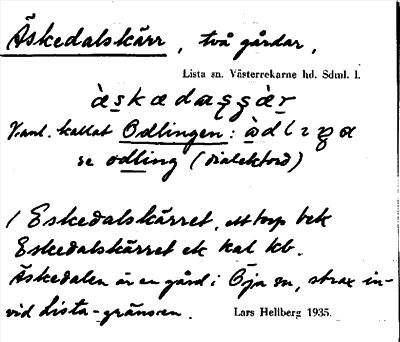 Äskedalskärr, två gårdar,
Lista sn. Västerrekarne hd. Sdml. l.
Vanl. kallat Odlingen:
se odling (dialektord)
/ Eskedalskärret, ett torp bek
Eskedalskärret ek kal kb.
Äskedalen är en gård i Öja sn, strax in-
vid Lista-gränsen. Lars Hellberg 1935.